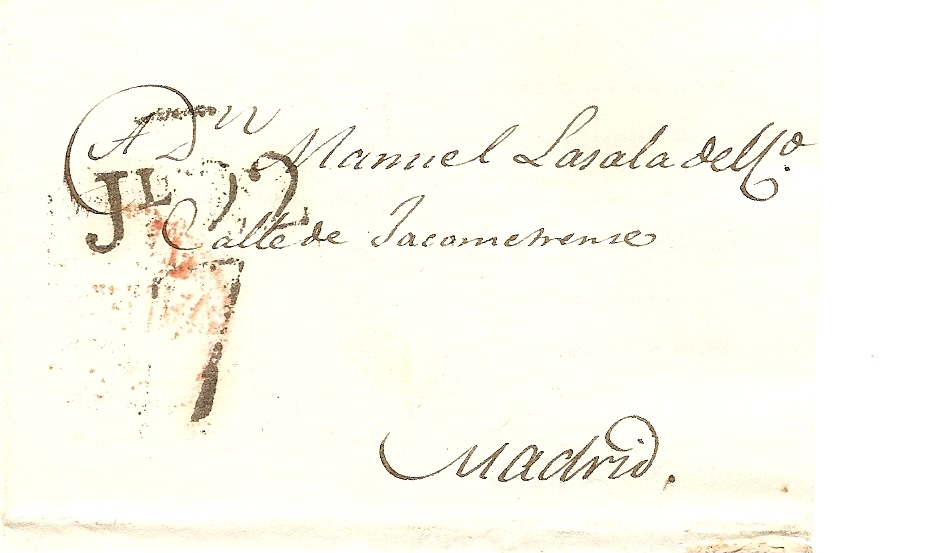 A Dn Manuel Lasala del Co.
JL 22
Calle de Jacometrense
7
Madrid.